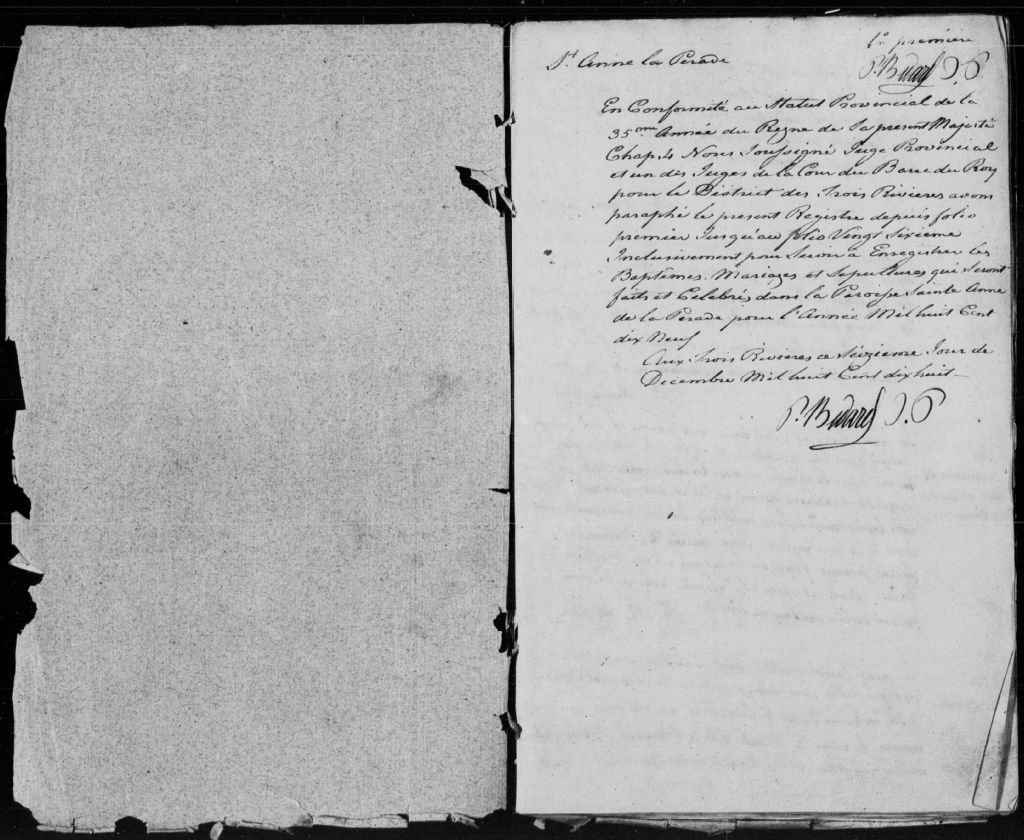 fo. premiere
P. Bedard J. P.
St. Anne la Perade
En Conformité au Statut Provincial de la
35eme Année du Regne de Sa present Majesté
Chap. 4 Nous Soussigné Juge Provincial
et un des Juges de la Cour du Banc du Roy
pour le District des Trois Rivieres avons
paraphé le present Registre depuis folio
premier Jusqu'au folio Vingt Sixieme
Inclusivement pour Servir à Enregistrer les
Baptêmes, Mariages et Sepultures qui Seront
faits et Celebrés dans la Paroisse Sainte Anne
de la Perade pour l'Année Mil huit Cent
dix Neuf
Aux Trois Rivieres ce Seizieme Jour de
Decembre Mil huit Cent dix huit
P. Bedard J. P.